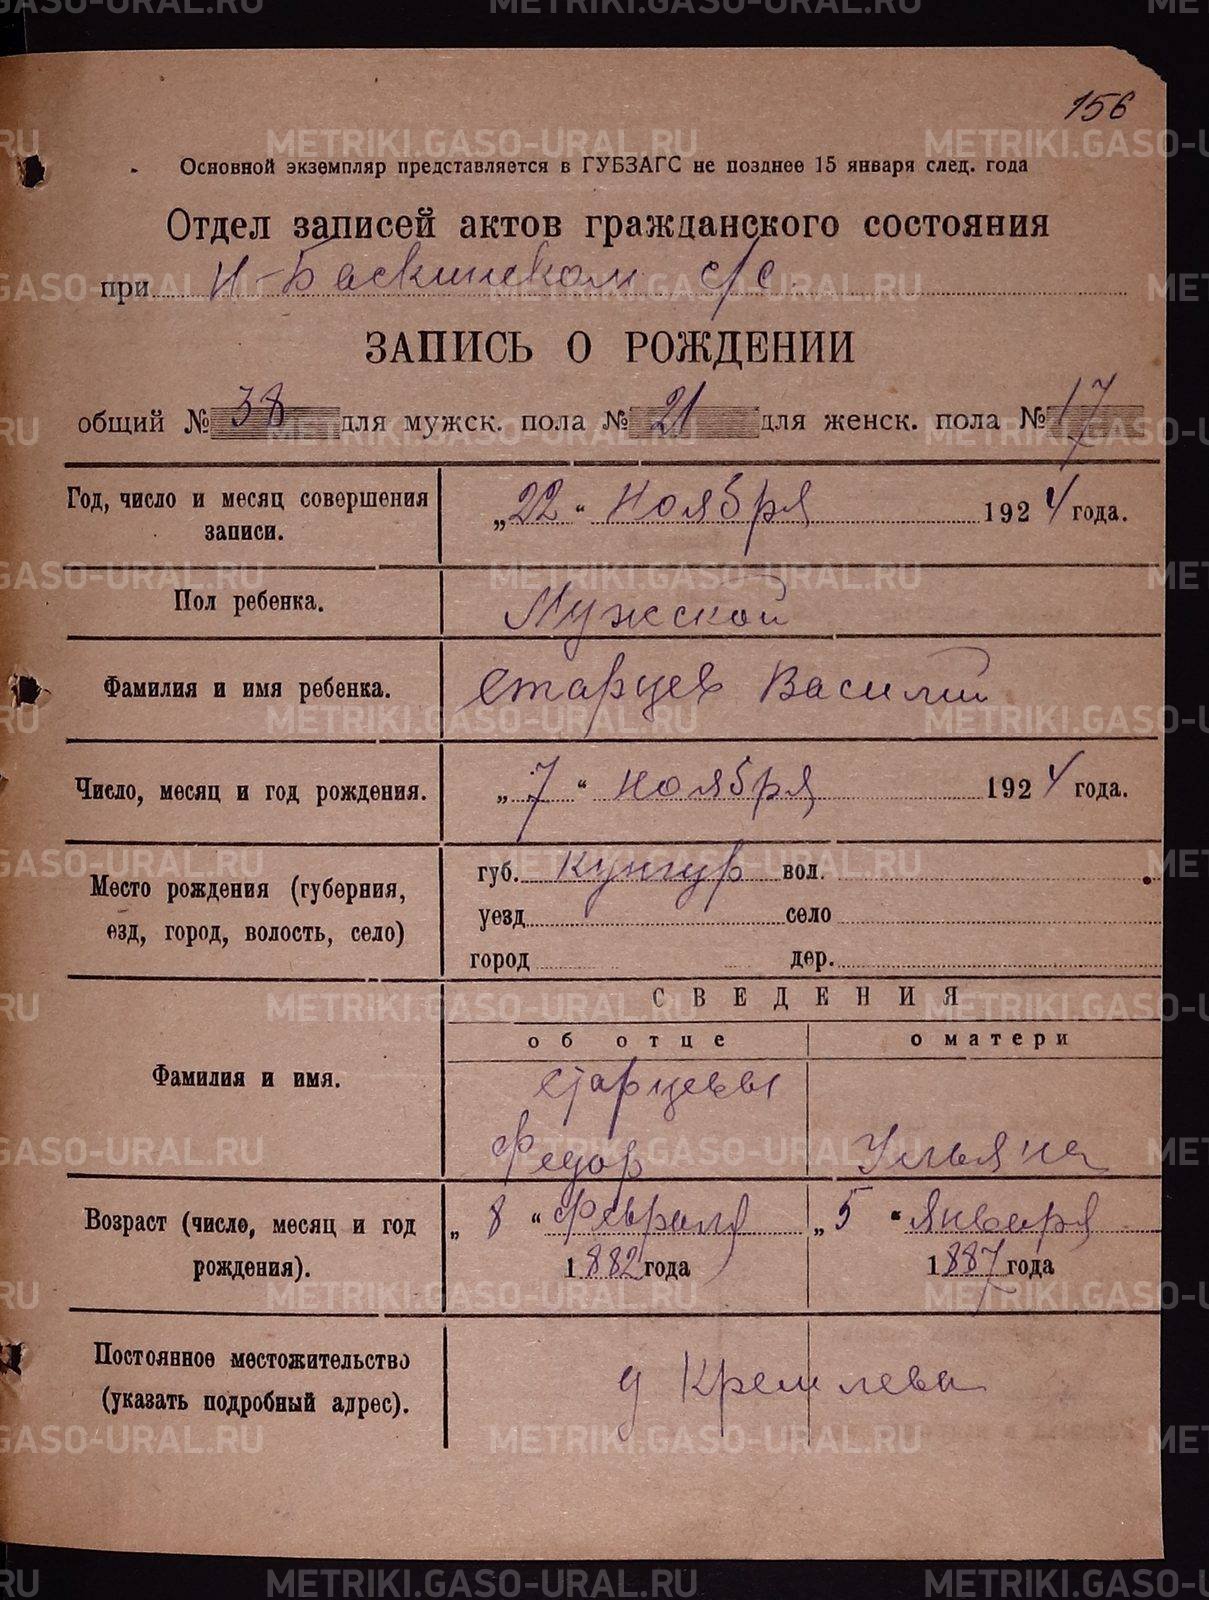 156
Основной экземпляр представляется в ГУБЗАГС не позднее 15 января след. года
Отдел записей актов гражданского состояния
при Н-Баскинском с/с.
ЗАПИСЬ О РОЖДЕНИИ
общий № 38 для мужск. пола № 21 для женск. пола № 17
Год, число и месяц совершения записи.
„22“ Ноября 1924 года.
Пол ребенка.
Мужской
Фамилия и имя ребенка.
Старцев Василий
Число, месяц и год рождения.
„7“ Ноября 1924 года.
Место рождения (губерния,
езд, город, волость, село)
губ. Кунгур вол.
уезд село
город дер.
СВЕДЕНИЯ
об отце о матери
Фамилия и имя.
Старцевы
Федор Ульяна
Возраст (число, месяц и год
рождения).
„8“ Февраля „5“ Января
1882 года 1887 года
Постоянное местожительство
(указать подробный адрес).
д Кремлева
METRIKI.GASO-URAL.RU